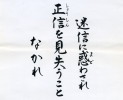 迷信に惑わされ
正信を見失うこと
なかれ